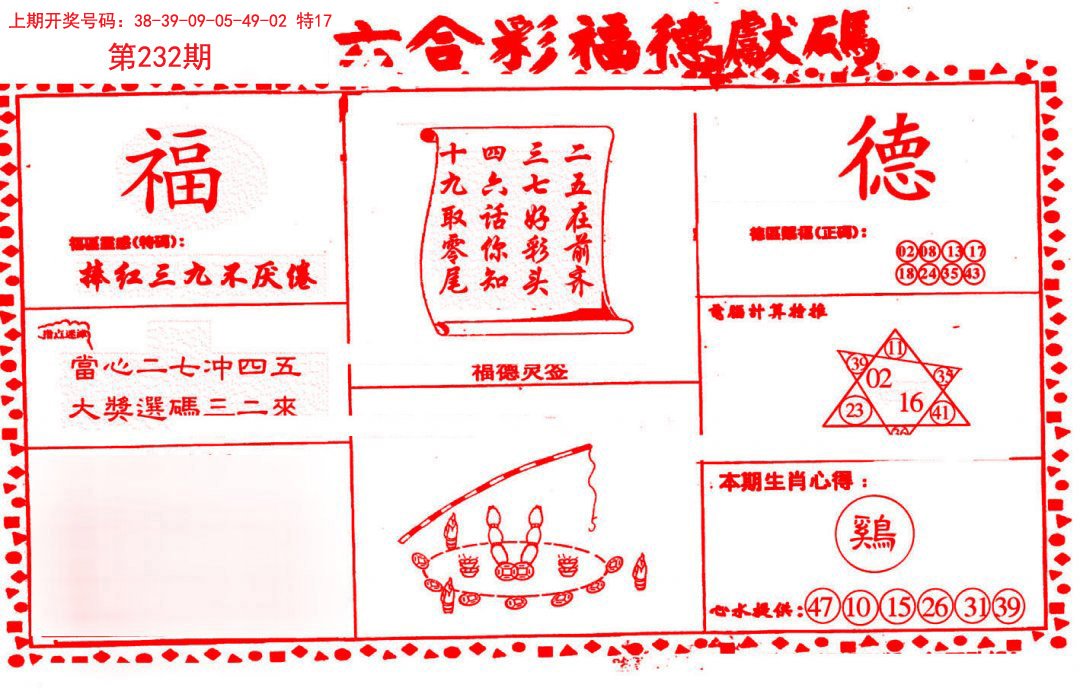 上期开奖号码：38-39-09-05-49-02 特17
第232期
六合彩福德獻碼
福
福區靈感(特碼)：
捧红三九不厌倦
當心二七冲四五
大獎選碼三二來
二五在前齐
三七好彩头
四六话你知
十九取零尾
福德灵签
德
德區賜福(正碼)：
02 08 13 17
18 24 35 43
電腦計算拾推
11
39 02 35
23 16 41
本期生肖心得：
鷄
心水提供：47 10 15 26 31 39